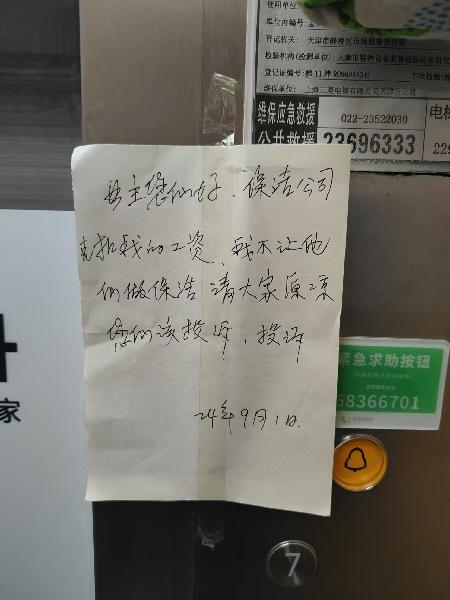 使用单位
单位内编号
登记机关：天津市静海区市场监督管理局
检验机构(检测单位)：天津市特种设备监督检验技术研究
登记证编号：梯11津R09695(24)
下次检验
维保单位：上海三菱电梯有限公司天津分公司
维保应急救援
022-23522030
电梯
公共救援
23696333
229
业主您们好、保洁公司
克扣我的工资、我不让他
们做保洁 请大家原谅
您们该投诉、投诉
24年9月1日.
紧急求助按钮
58366701
家
7